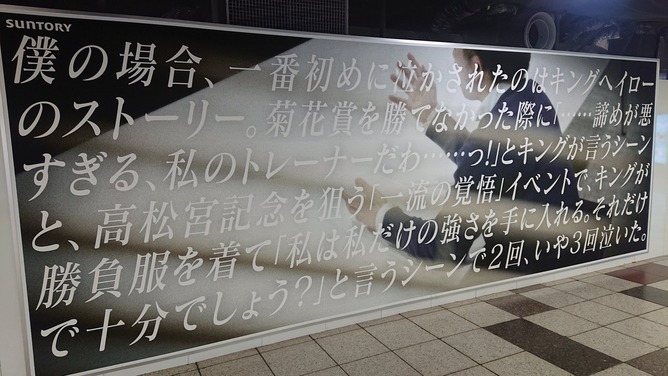 SUNTORY
僕の場合、一番初めに泣かされたのはキングヘイロー
のストーリー。菊花賞を勝てなかった際に「……諦めが悪
すぎる、私のトレーナーだわ……っ!」とキングが言うシーン
と、高松宮記念を狙う「一流の覚悟」イベントで、キングが
勝負服を着て「私は私だけの強さを手に入れる。それだけ
で十分でしょう?」と言うシーンで2回、いや3回泣いた。